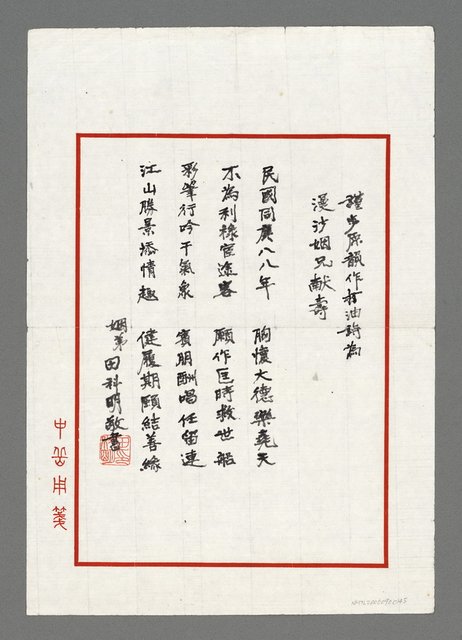 謹步原韻作打油詩為
漫沙姻兄献壽
民國同庚八八年 胸懷大德樂堯天
不為利祿宦途客 願作匡時救世船
彩筆行吟干氣象 賓朋酬唱任留連
江山勝景添情趣 健履期頤結善緣
姻弟田科明敬書
用箋